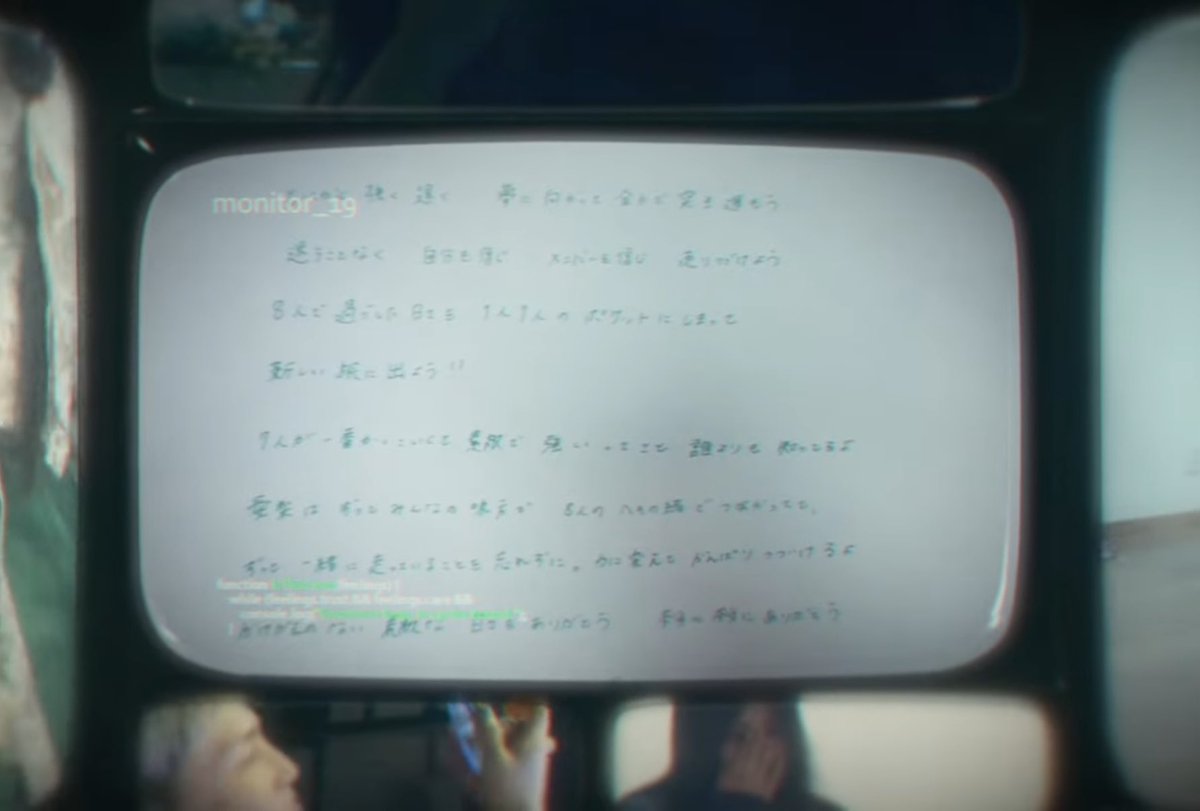 monitor_19
強く 速く 夢に向かって 全力で 突き進もう
迷うことなく 自分を信じ メンバーを信じ 走りつづけよう
8人で過ごした日々を 1人1人のポケットにしまって
新しい旅に出よう!!
7人が一番かっこいくて 素敵で 強いってこと 誰よりも 知ってるよ
は ずっと みんなの 味方で 8人の
ずっと 一緒に 走っていることを 忘れずに。力に変えて がんばりつづけるよ
function
while (feelings.trust && feelings.care &&
かけがえのない 素敵な 日々をありがとう 本当に 本当に ありがとう